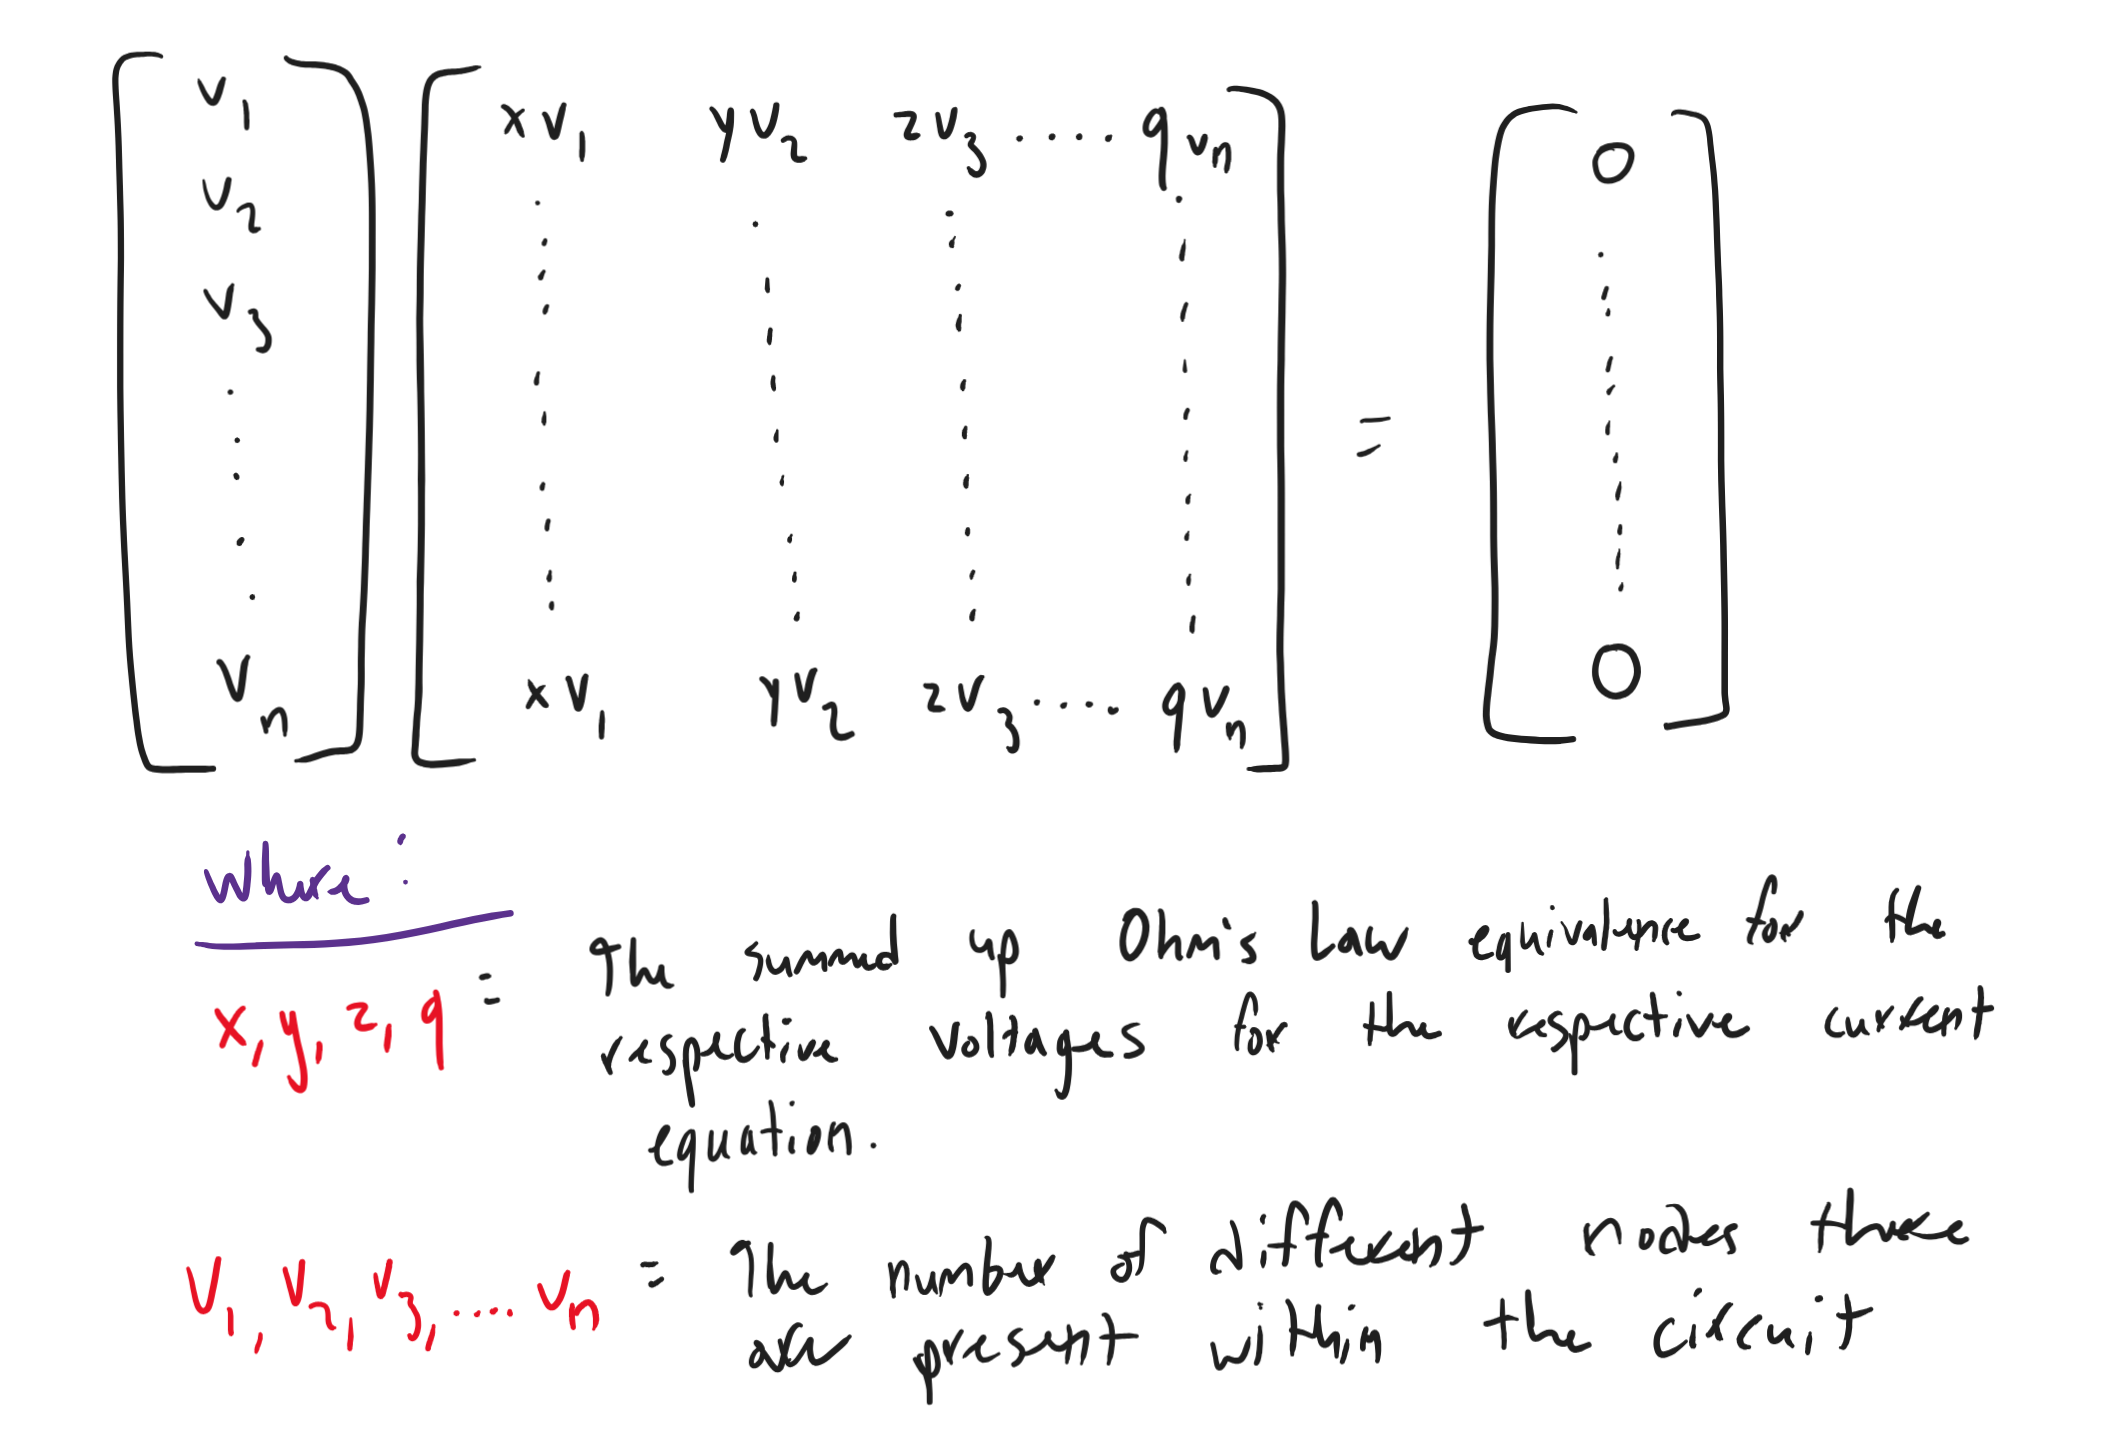 v1 xv1 yv2 zv3 .... qvn 0
v2
v3
vn xv1 yv2 zv3 .... qvn 0
=
where:
x, y, z, q = The summed up Ohm's Law equivalence for the
respective voltages for the respective current
equation.
V1, V2, V3, .... Vn = The number of different nodes there
are present within the circuit